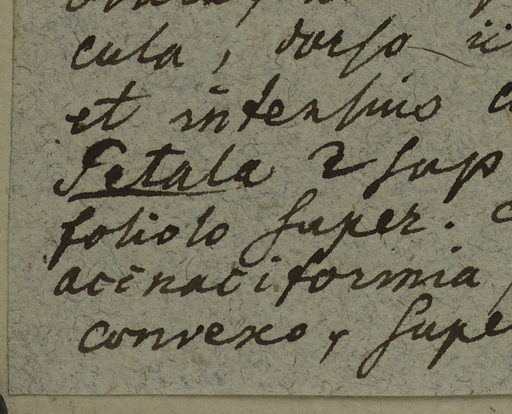 cula, dorso
et intensius
Petala 2 sup
foliolo super.
acinaciformia
convexo, supe